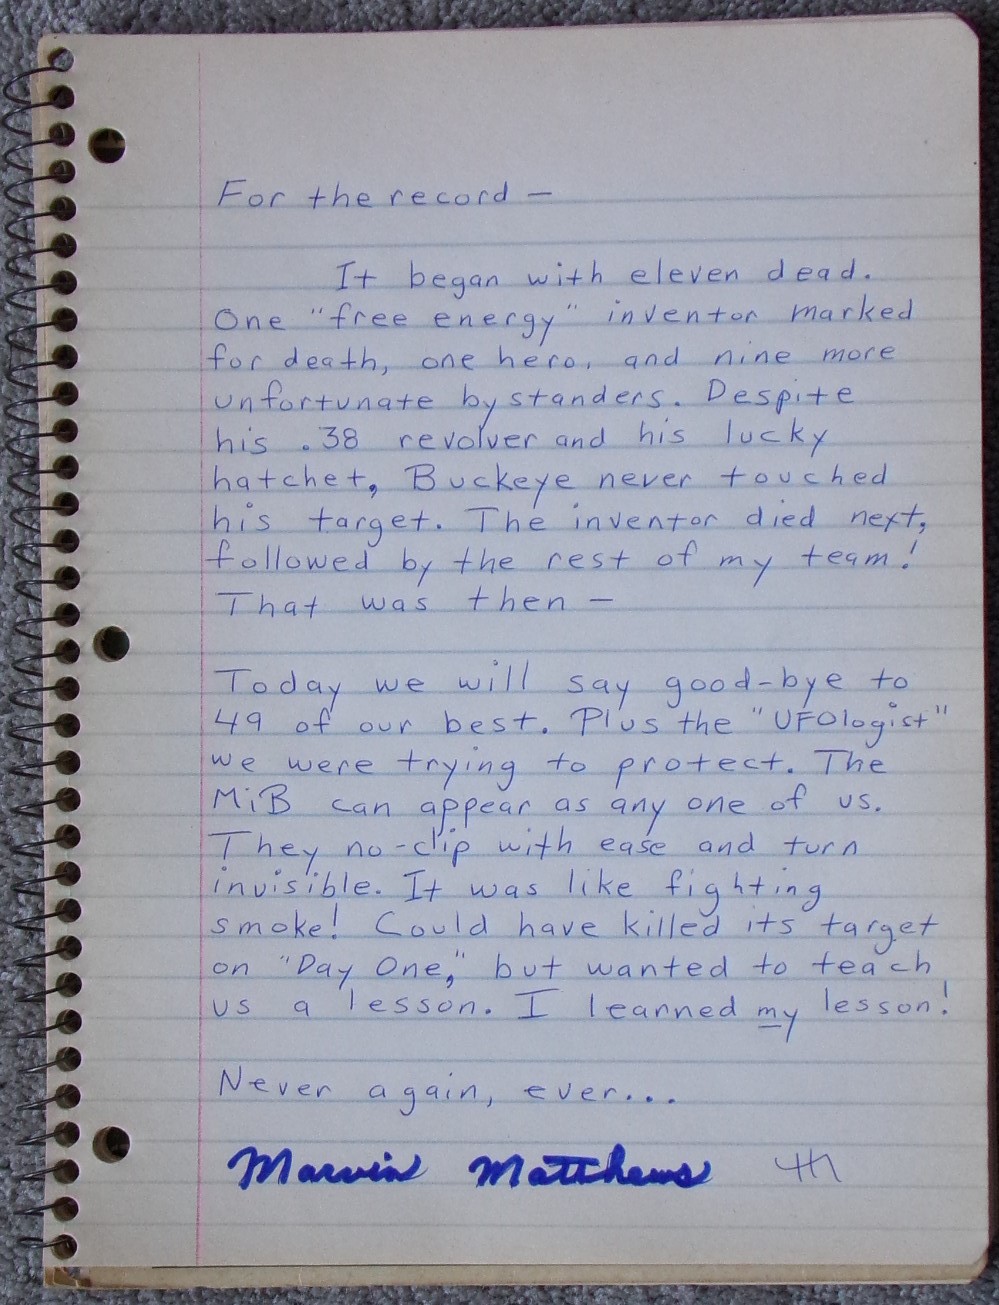 For the record –
It began with eleven dead.
One "free energy" inventor marked
for death, one hero, and nine more
unfortunate bystanders. Despite
his .38 revolver and his lucky
hatchet, Buckeye never touched
his target. The inventor died next,
followed by the rest of my team!
That was then –
Today we will say good-bye to
49 of our best. Plus the "UFOlogist"
we were trying to protect. The
MiB can appear as any one of us.
They no-clip with ease and turn
invisible. It was like fighting
smoke! Could have killed its target
on "Day One," but wanted to teach
us a lesson. I learned my lesson!
Never again, ever...
Marvin Matthews